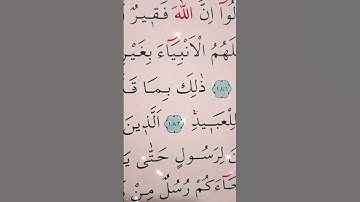 لُوٓا اِنَّ اللّٰهَ فَقٖيرٌ
لَهُمُ الْاَنْبِيَٓاءَ بِغَيْرِ
﴿١٨١﴾ ذٰلِكَ بِمَا قَ
لِلْعَبٖيدِۚ ﴿١٨٢﴾ اَلَّذٖينَ
نَ لِرَسُولٍ حَتّٰى يَ
جَٓاءَكُمْ رُسُلٌ مِنْ